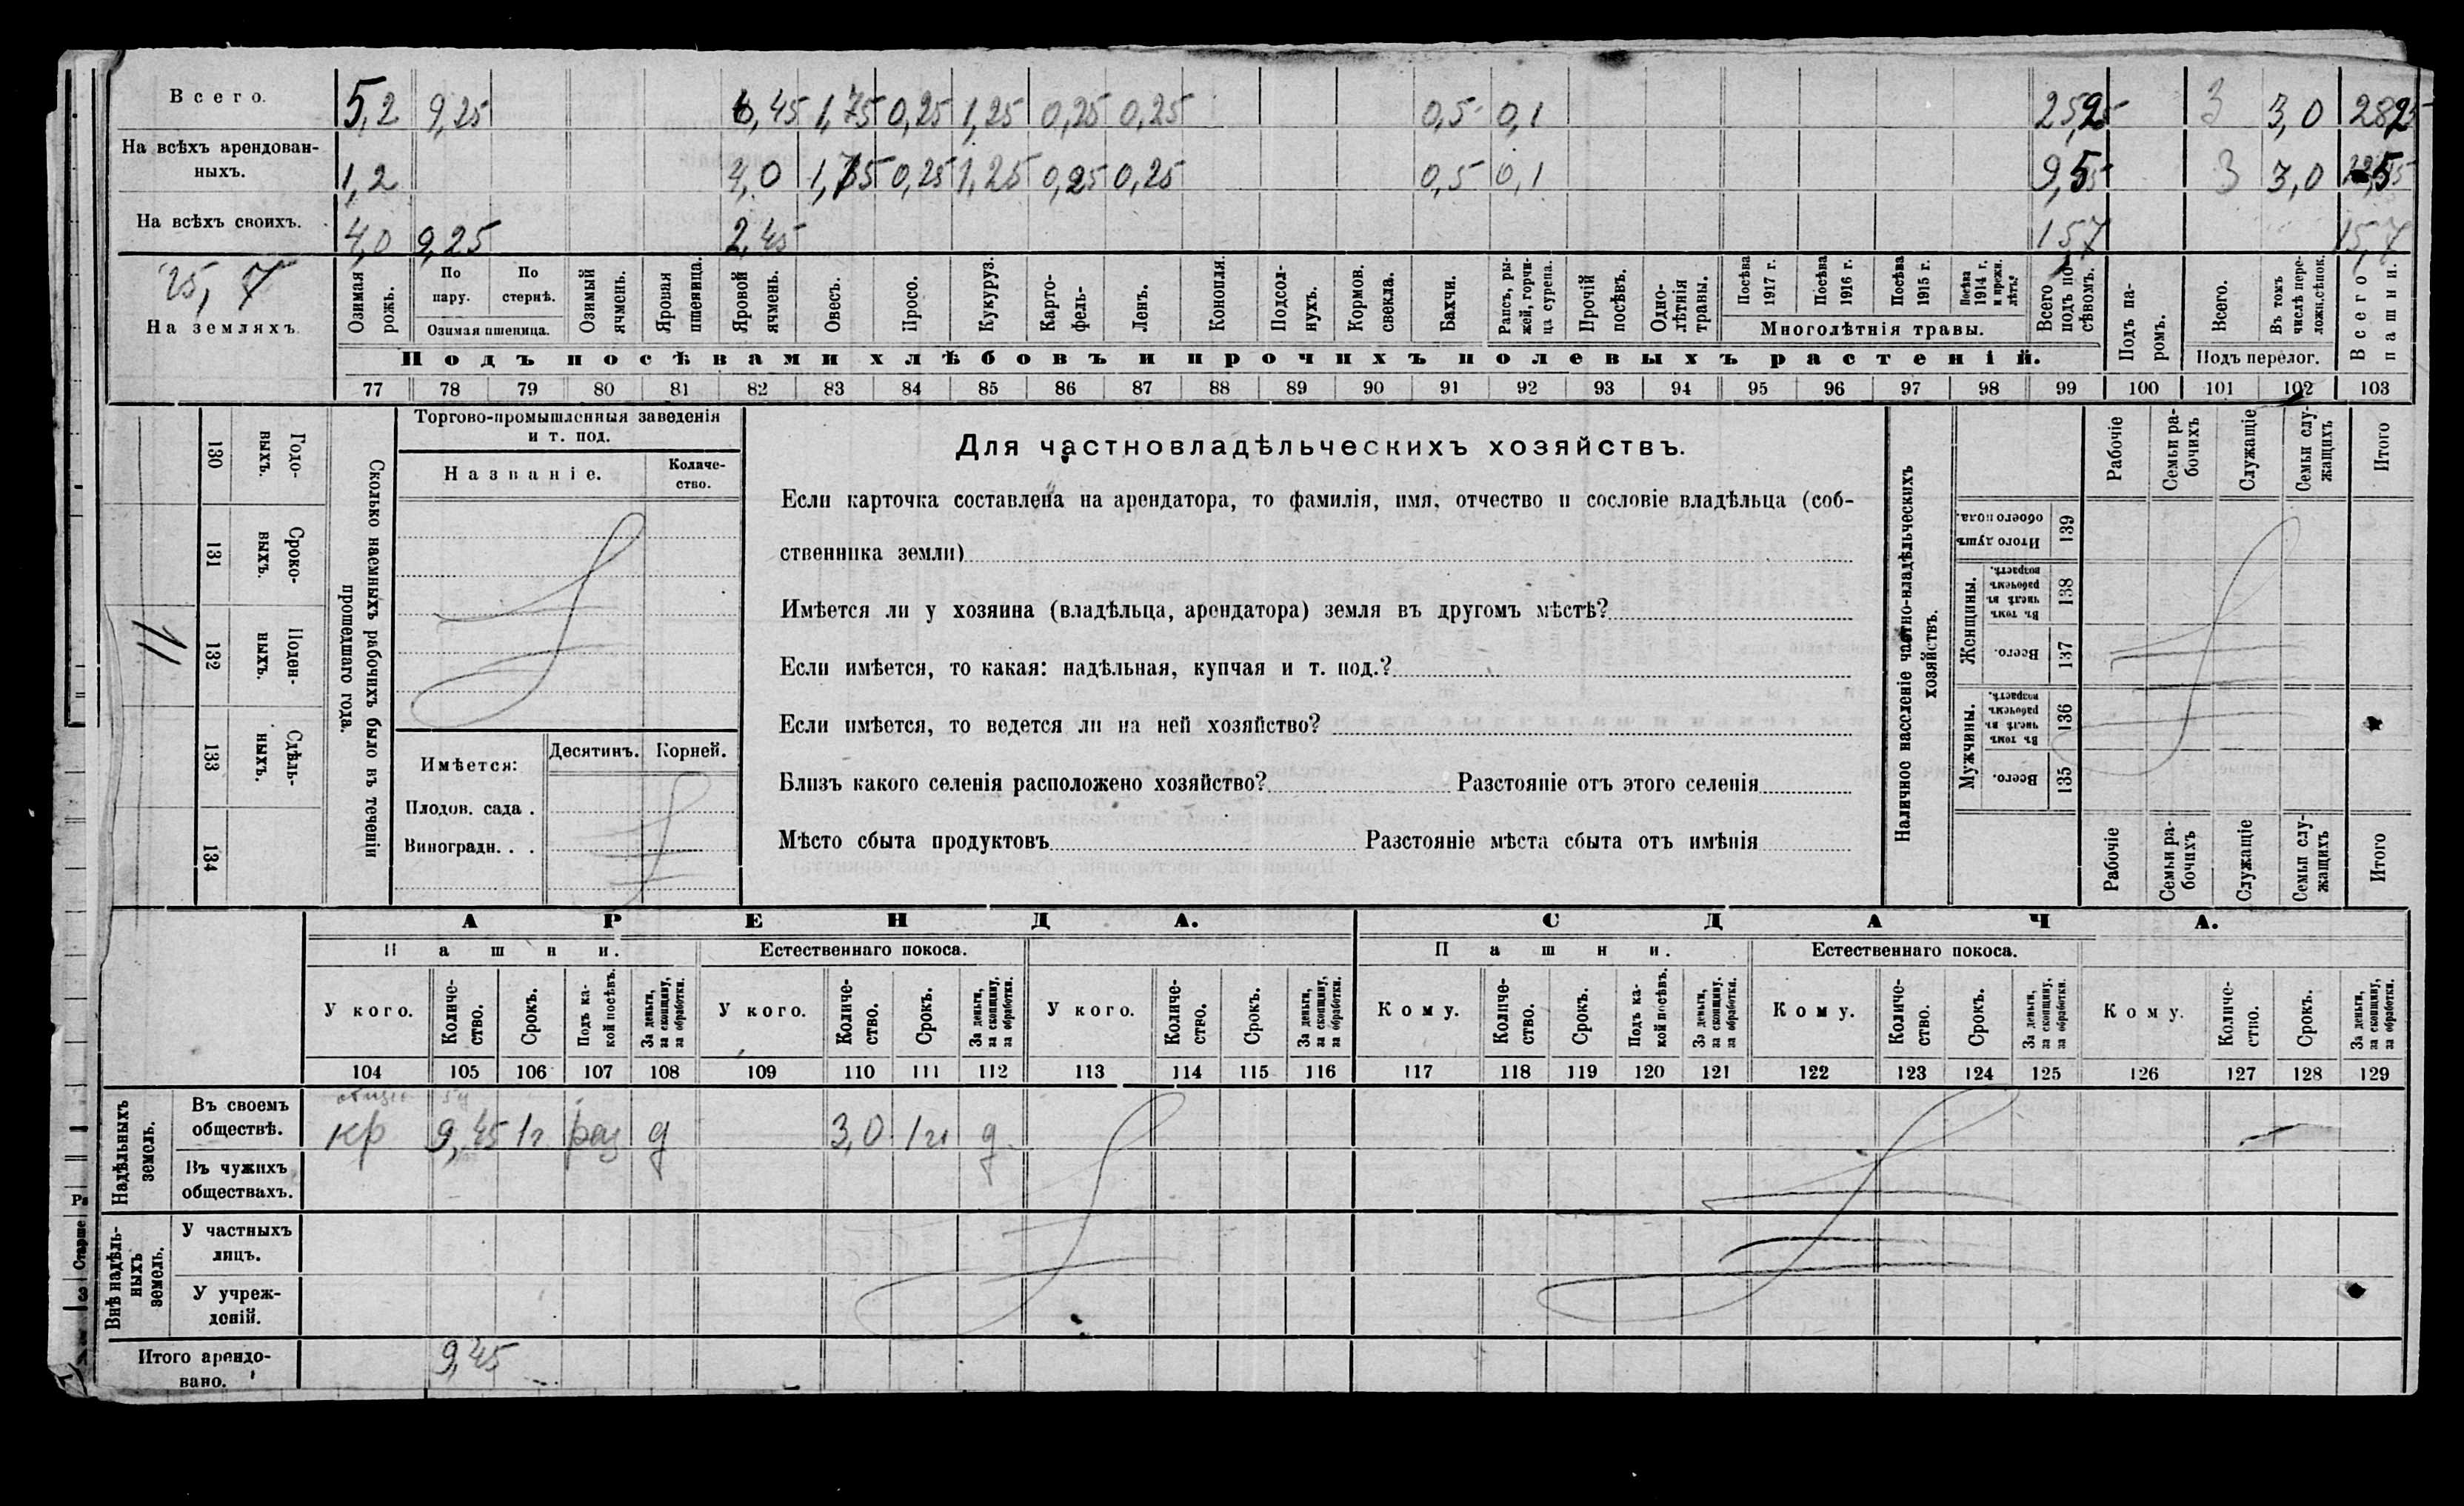 Всего. 5,2 9,25 6,45 1,75 0,25 1,25 0,25 0,25 0,5 0,1 25,25 3 3,0 28,25
На всѣхъ арендован-
ныхъ. 1,2 4,0 1,75 0,25 1,25 0,25 0,25 0,5 0,1 9,55 3 3,0
На всѣхъ своихъ. 4,0 9,25 2,45 15,7 15,7
25,7
На земляхъ
Озимая рожь.
По пару.
По стернѣ.
Озимая пшеница.
Озимый ячмень.
Яровая пшеница.
Яровой ячмень.
Овесъ.
Просо.
Кукуруз.
Карто-
фель-
Ленъ.
Конопля.
Подсол-
нухъ.
Кормов. свекла.
Бахчи.
Рапсъ, ры-
жей, горчи-
ца сурепа.
Прочій посѣвъ.
Одно-
лѣтнія травы.
Посѣва 1917 г.
Посѣва 1916 г.
Посѣва 1915 г.
Посѣва 1914 г. и прежн. лѣтъ.
Многолѣтнія травы.
Всего подъ по-
сѣвомъ.
Подъ па-
ромъ.
Всего.
Въ томъ числѣ пере-
лож. сѣнок.
Подъ перелог.
Всего пашни.
Подъ посѣвами хлѣбовъ и прочихъ полевыхъ растеній.
77 78 79 80 81 82 83 84 85 86 87 88 89 90 91 92 93 94 95 96 97 98 99 100 101 102 103
Сколько наемныхъ рабочихъ было въ теченіи
прошедшаго года.
Годо-
выхъ.
130
Сроко-
выхъ.
131
Поден-
ныхъ.
132
11
Сдѣль-
ныхъ.
133
134
Торгово-промышленныя заведенія
и т. под.
Названіе.
Количе-
ство.
Имѣется:
Десятинъ. Корней.
Плодов. сада .
Виноградн. . .
Для частновладѣльческихъ хозяйствъ.
Если карточка составлена на арендатора, то фамилія, имя, отчество и сословіе владѣльца (соб-
ственника земли)
Имѣется ли у хозяина (владѣльца, арендатора) земля въ другомъ мѣстѣ?
Если имѣется, то какая: надѣльная, купчая и т. под.?
Если имѣется, то ведется ли на ней хозяйство?
Близъ какого селенія расположено хозяйство? Разстояніе отъ этого селенія
Мѣсто сбыта продуктовъ Разстояніе мѣста сбыта отъ имѣнія
Наличное населеніе частно-владѣльческихъ
хозяйствъ.
Рабочіе
Семьи ра-
бочихъ
Служащіе
Семьи слу-
жащихъ
Итого
Итого душъ обоего пола. 139
Женщины.
Въ томъ числѣ въ рабочемъ возрастѣ. 138
Всего. 137
Мужчины.
Въ томъ числѣ въ рабочемъ возрастѣ. 136
Всего. 135
Рабочіе
Семьи ра-
бочихъ
Служащіе
Семьи слу-
жащихъ
Итого
АРЕНДА. СДАЧА.
Пашни. Естественнаго покоса. Пашни. Естественнаго покоса.
У кого.
Количе-
ство.
Срокъ.
Подъ ка-
кой посѣвъ.
За деньги, за скопщину, за обработки.
У кого.
Количе-
ство.
Срокъ.
За деньги, за скопщину, за обработки.
У кого.
Количе-
ство.
Срокъ.
За деньги, за скопщину, за обработки.
Кому.
Количе-
ство.
Срокъ.
Подъ ка-
кой посѣвъ.
За деньги, за скопщину, за обработки.
Кому.
Количе-
ство.
Срокъ.
За деньги, за скопщину, за обработки.
Кому.
Количе-
ство.
Срокъ.
За деньги, за скопщину, за обработки.
104 105 106 107 108 109 110 111 112 113 114 115 116 117 118 119 120 121 122 123 124 125 126 127 128 129
Надѣльныхъ
земель.
Въ своемъ
обществѣ. кр 9,45 1г раз д 3,0 1г д
Въ чужихъ
обществахъ.
Внѣ надѣль-
ныхъ
земель.
У частныхъ
лицъ.
У учреж-
деній.
Итого арендо-
вано. 9,45
Старше